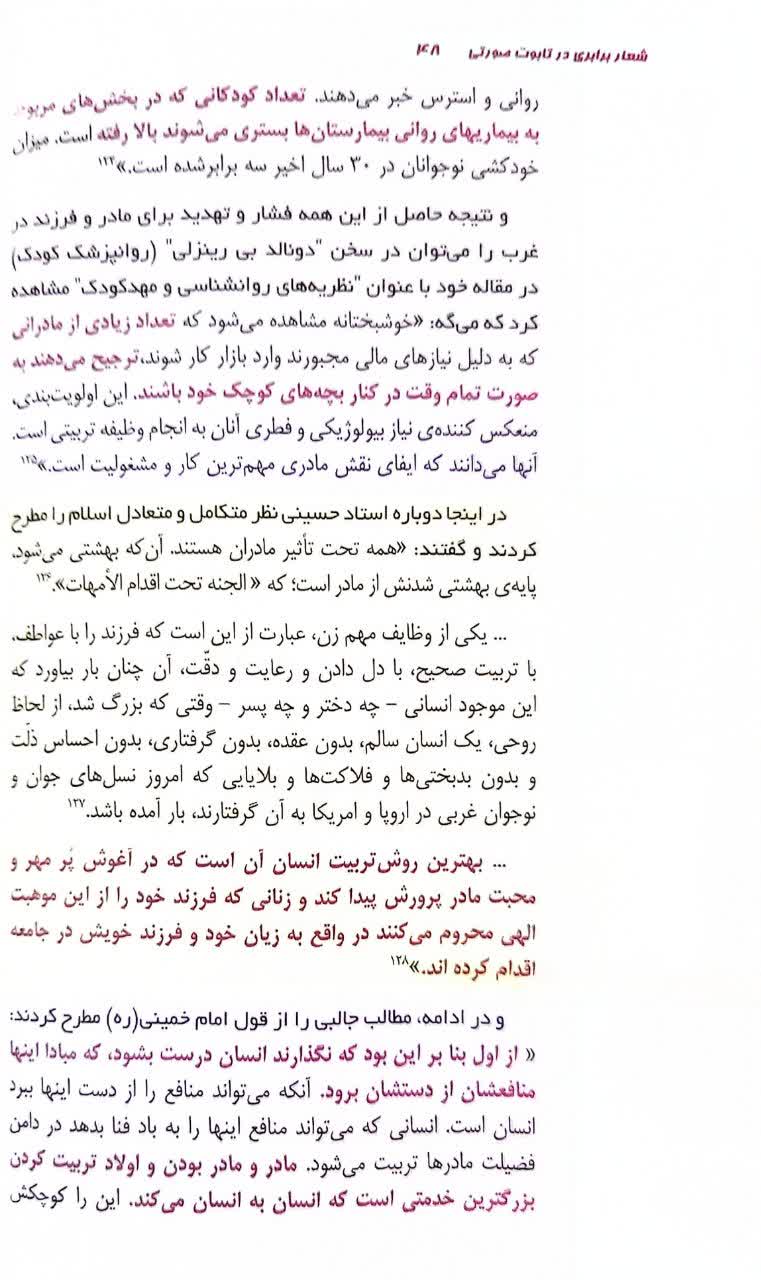 شعار برابری در تابوت صورتی ۴۸
روانی و استرس خبر می‌دهند. تعداد کودکانی که در بخش‌های مربوط
به بیماریهای روانی بیمارستان‌ها بستری می‌شوند بالا رفته است. میزان
خودکشی نوجوانان در ۳۰ سال اخیر سه برابرشده است.»۱۲۴
و نتیجه حاصل از این همه فشار و تهدید برای مادر و فرزند در
غرب را می‌توان در سخن "دونالد بی رینزلی" (روانپزشک کودک)
در مقاله خود با عنوان "نظریه‌های روانشناسی و مهدکودک" مشاهده
کرد که می‌گه: «خوشبختانه مشاهده می‌شود که تعداد زیادی از مادرانی
که به دلیل نیازهای مالی مجبورند وارد بازار کار شوند،ترجیح می‌دهند به
صورت تمام وقت در کنار بچه‌های کوچک خود باشند. این اولویت‌بندی،
منعکس کننده‌ی نیاز بیولوژیکی و فطری آنان به انجام وظیفه تربیتی است.
آنها می‌دانند که ایفای نقش مادری مهم‌ترین کار و مشغولیت است.»۱۲۵
در اینجا دوباره استاد حسینی نظر متکامل و متعادل اسلام را مطرح
کردند و گفتند: «همه تحت تأثیر مادران هستند. آن‌که بهشتی می‌شود،
پایه‌ی بهشتی شدنش از مادر است؛ که « الجنه تحت اقدام الأمهات».۱۲۶
... یکی از وظایف مهم زن، عبارت از این است که فرزند را با عواطف،
با تربیت صحیح، با دل دادن و رعایت و دقّت، آن چنان بار بیاورد که
این موجود انسانی – چه دختر و چه پسر – وقتی که بزرگ شد، از لحاظ
روحی، یک انسان سالم، بدون عقده، بدون گرفتاری، بدون احساس ذلّت
و بدون بدبختی‌ها و فلاکت‌ها و بلایایی که امروز نسل‌های جوان و
نوجوان غربی در اروپا و امریکا به آن گرفتارند، بار آمده باشد.۱۲۷
... بهترین روش‌تربیت انسان آن است که در آغوش پُر مهر و
محبت مادر پرورش پیدا کند و زنانی که فرزند خود را از این موهبت
الهی محروم می‌کنند در واقع به زیان خود و فرزند خویش در جامعه
اقدام کرده اند.»۱۲۸
و در ادامه، مطالب جالبی را از قول امام خمینی(ره) مطرح کردند:
« از اول بنا بر این بود که نگذارند انسان درست بشود، که مبادا اینها
منافعشان از دستشان برود. آنکه می‌تواند منافع را از دست اینها ببرد
انسان است. انسانی که می‌تواند منافع اینها را به باد فنا بدهد در دامن
فضیلت مادرها تربیت می‌شود. مادر و مادر بودن و اولاد تربیت کردن
بزرگترین خدمتی است که انسان به انسان می‌کند. این را کوچکش